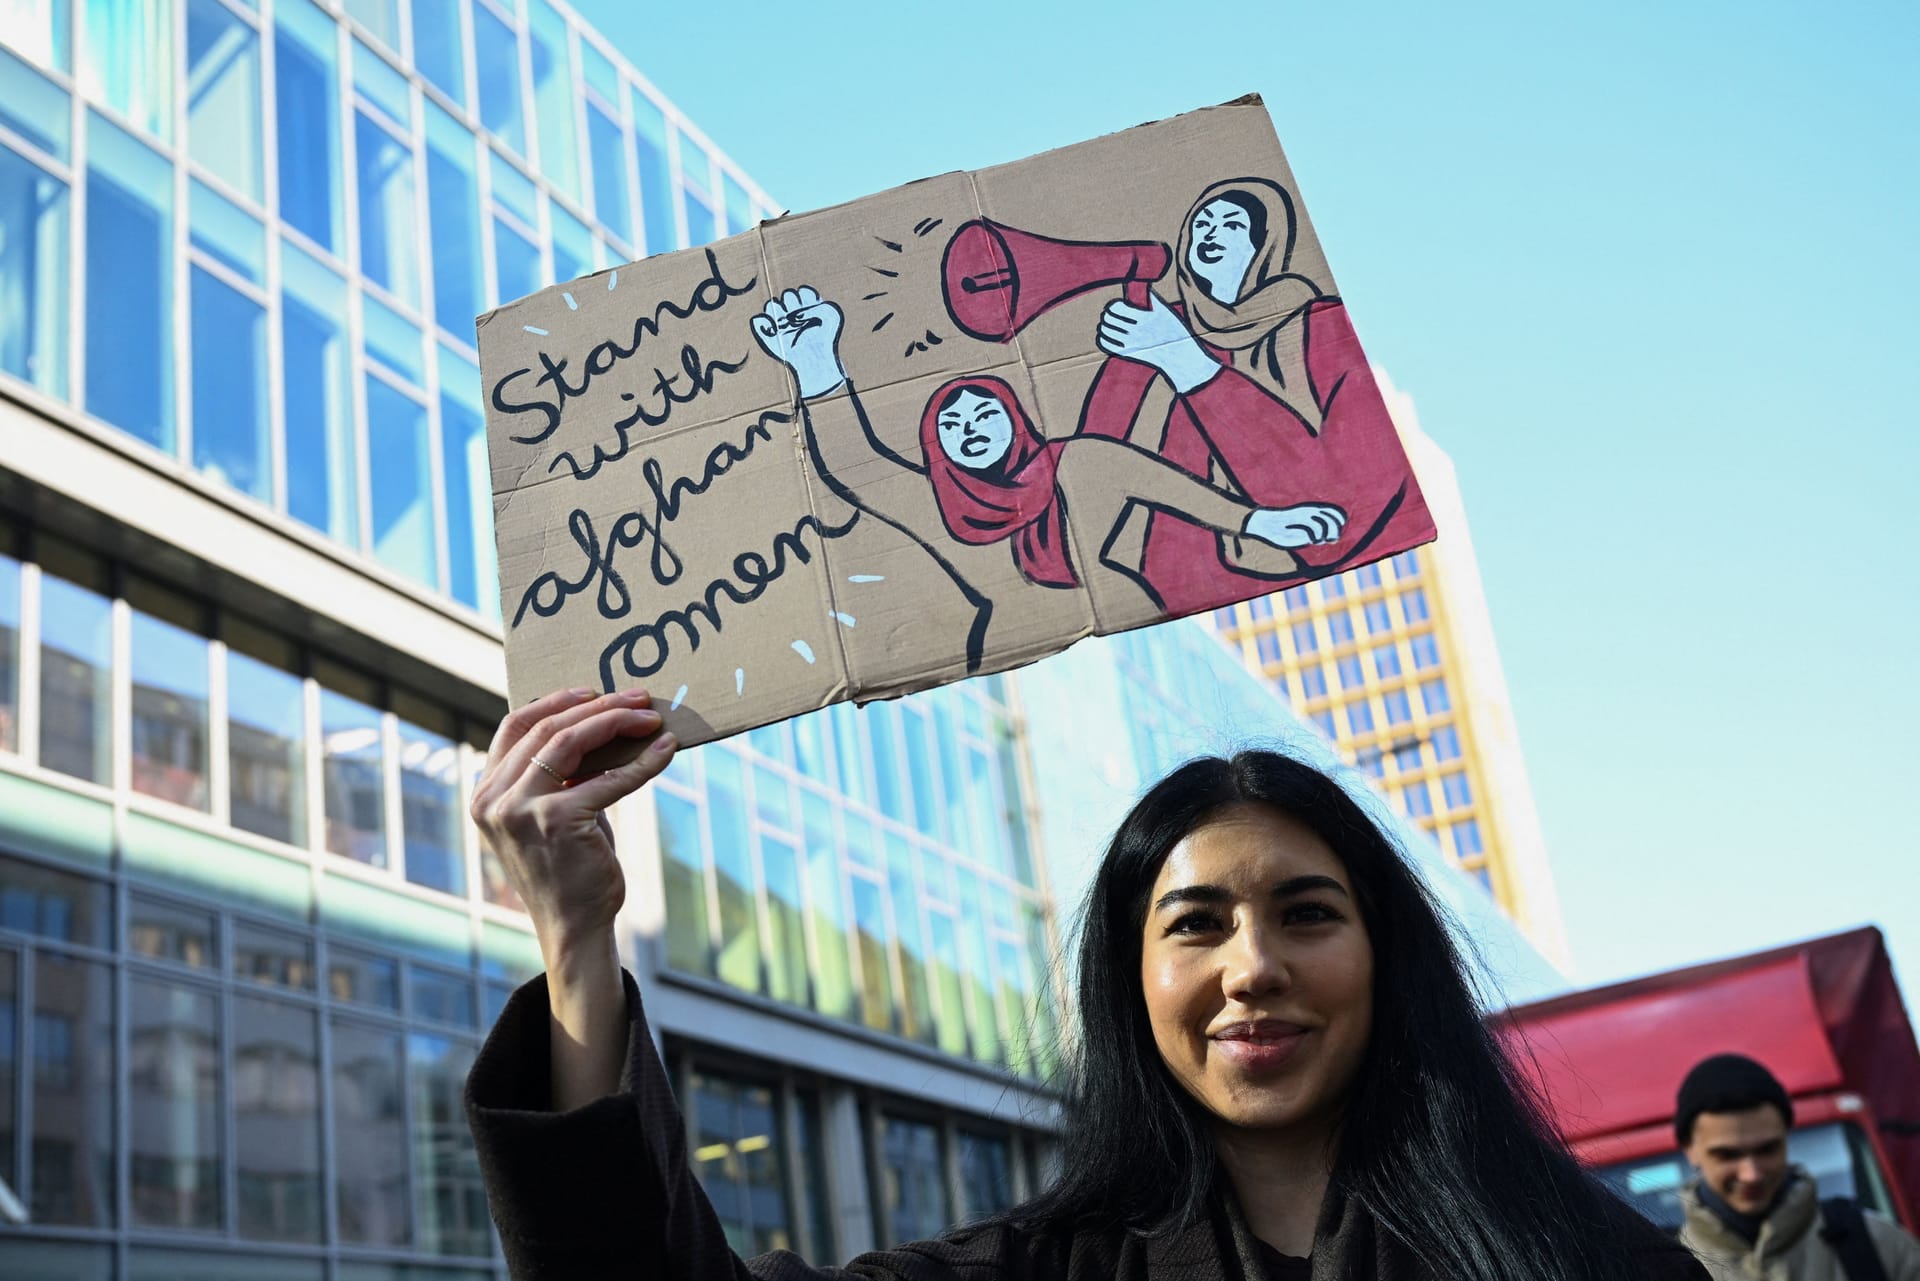 Stand
with
afghan
women